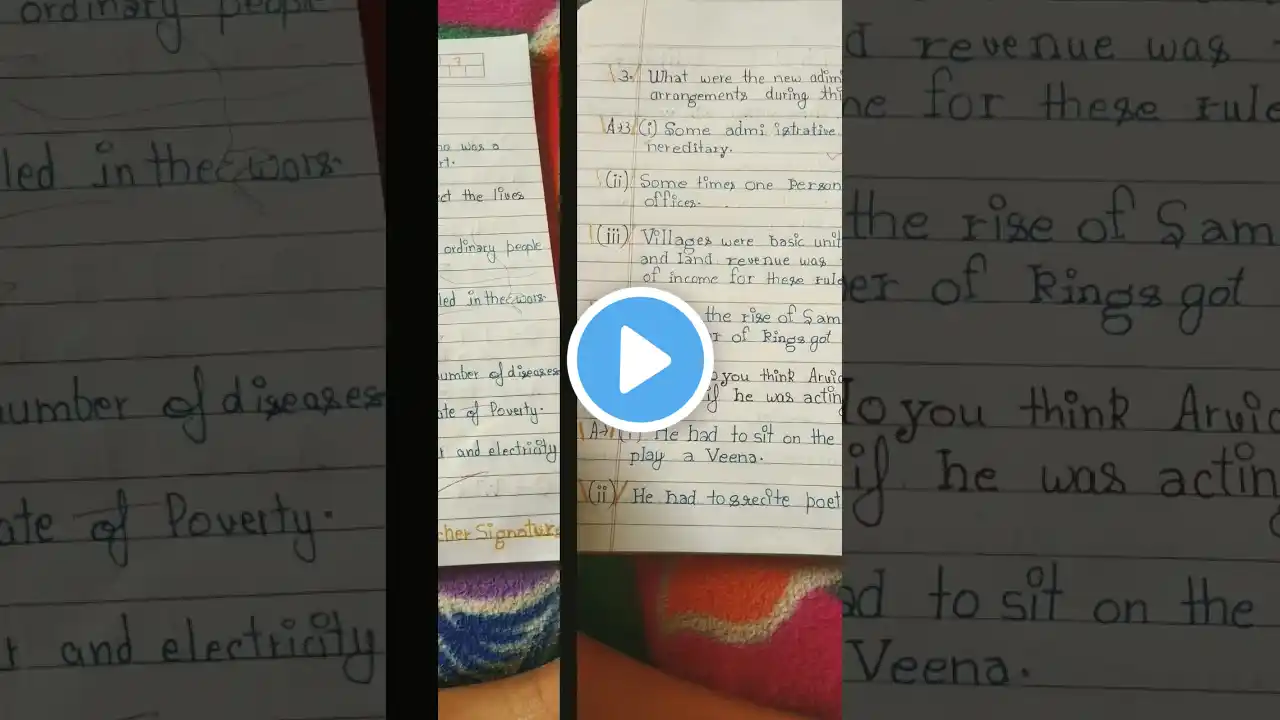 ordinary people
led in the wars.
number of diseases
ate of Poverty.
r and electricity
no was a
rt.
ct the lives
ordinary people
led in the wars.
umber of diseases
ate of Poverty.
r and electricity
cher Signature
3. What were the new admi
arrangements during thi
A→3 (i) Some admi istrative
hereditary.
(ii) Some times one Person
offices.
(iii) Villages were basic unit
and land revenue was
of income for these rule
the rise of Sam
r of Kings got
o you think Arvi
if he was acting
A→ (i) He had to sit on the
play a Veena.
(ii) He had to recite poet
d revenue was
me for these rule
the rise of Sam
er of Kings got
do you think Arvi
if he was acting
ad to sit on the
Veena.